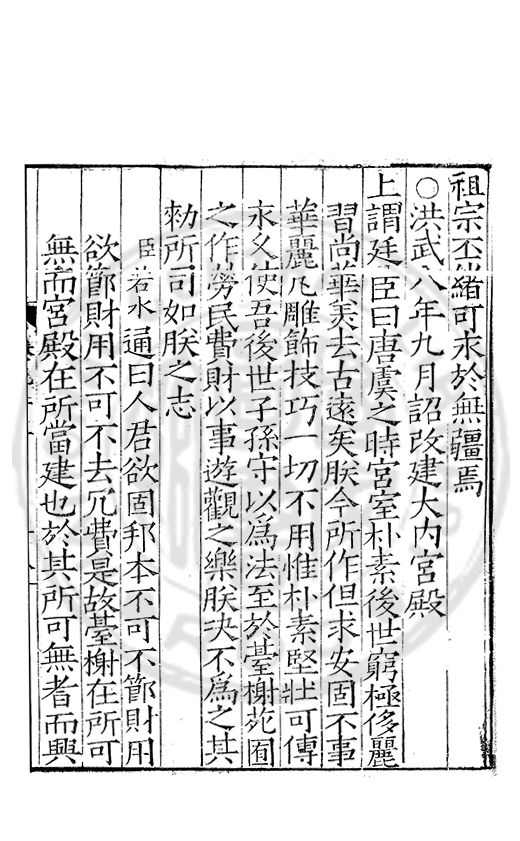 祖宗丕緒可永於無疆焉
○洪武八年九月詔改建大内宮殿
上謂廷臣曰唐虞之時宮室朴素後世窮極侈麗
習尚華美去古遠矣朕今所作但求安固不事
華麗凡雕飾技巧一切不用惟朴素堅壯可傳
永久使吾後世子孫守以為法至於臺榭苑囿
之作勞民費財以事遊觀之樂朕决不為之其
勑所司如朕之志
臣若水通曰人君欲固邦本不可不節財用
欲節財用不可不去冗費是故臺榭在所可
無而宮殿在所當建也於其所可無者而興